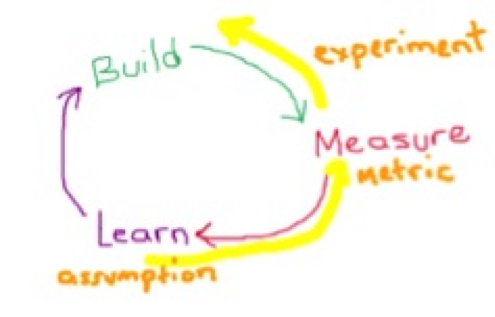 Build
experiment
Measure
metric
Learn
assumption